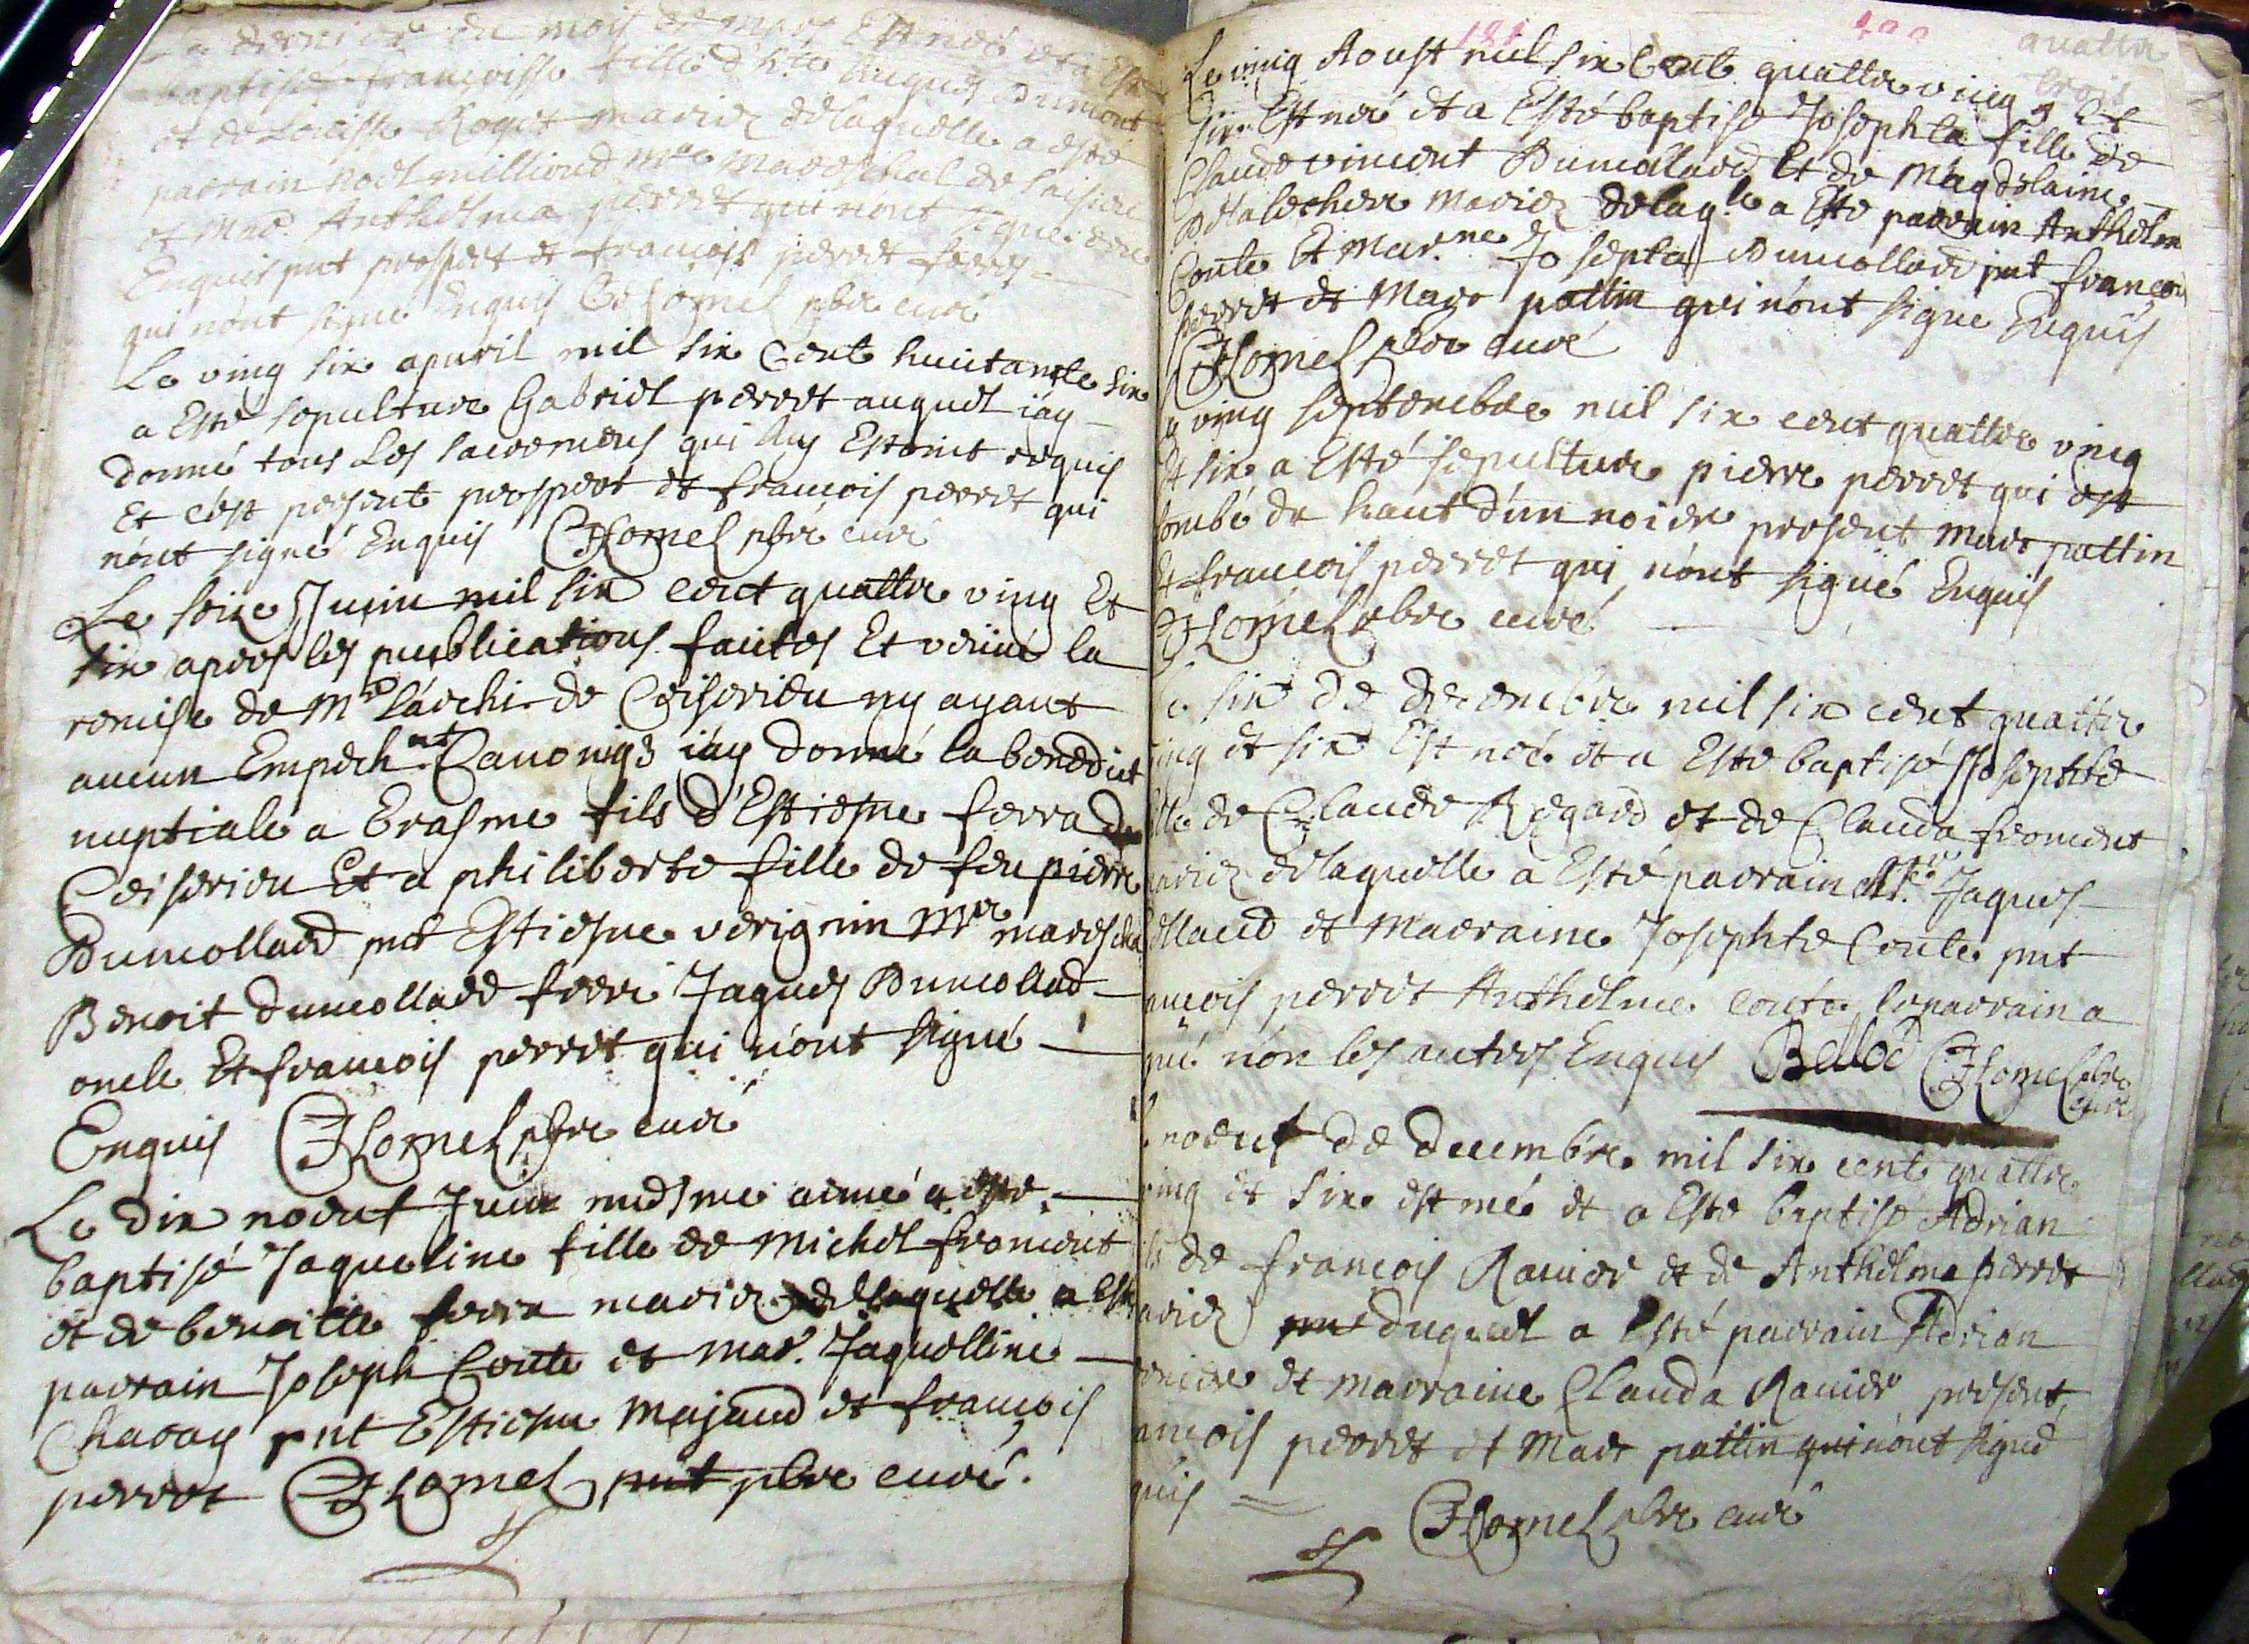 Le dernier du mois de mars Est neé et a Esté
baptisé francoisse fille d'h.te huguez Dumont
et de Louisse Roget mariez delaquelle a esté
parrain noel milliend m.re mareschal de
et mad. Anthelma perret qui nont signé
Enquis pnt prospert et francois perret freres
qui nont signé Enquis CJLomel pbre curé
Le ving six apuril mil six Cent huictante six
a Esté sepulture Gabriel perret auquel iáy
donné tous Les sacremens qui luy Estoint requis
Et cest present prospert et francois perret qui
nónt signé Enquis CJLomel pbre curé
Le seize Juin mil six cent quattre ving Et
six apres les publications faites Et veüüe la
remise de Mr lárchi de Ceiserieu ny ayant
aucun Empech.nt Canonigs iáy donné la benedict
nuptiale a Erasme fils d'Estiesne ferra de
Ceiserieu Et a philiberte fille de feu pierre
Dumollard pnt Estiesne verignin M.re mareschal
Benoit dumollard frere Jaques Dumollard
oncle Et francois perret qui nónt signé
Enquis CJLomel pbre curé
Le dix noeuf Juin mesme anné a esté
baptisé Jaqueline fille de Michel froment
et de benoitte ferra mariez delaquelle a Esté
parrain Joseph Conte et mar. Jaquelline
Chavay pnt Estiesne Majaud et francois
perret CJLomel pnt pbre curé.
Le ving Aoust mil six Cent quattre ving Et
six Est neé et a Esté baptisé Josephta fille de
Claude vincent Dumollard Et de Magdelaine
mariez delaq.le a Esté parrain Anthelme
Conte Et mar.ne Josepta Dumollard pnt francois
perret et Marc pattin qui nónt signé Enquis
CJLomel pbre curé
Le ving septembre mil six cent quattre ving
Et six a Esté sepulture pierre perret qui est
tombé de haut dún noier present Marc pattin
Et francois perret qui nónt signé Enquis
CJLomel pbre curé
Le six de decembre mil six cent quattre
ving et six Est neé et a Esté baptisé Josephte
fille de Claude Regard et de Clauda froment
mariez delaquelle a Esté parrain Jaques
Bellaud et Marraine Josephte Conte pnt
francois perret Anthelme conte le parrain a
signé nón les autres Enquis Bellod CJLomel pbre
curé
Le noeuf de decembre mil six cent quattre
ving et six est né et a Esté baptisé Adrian
fils de francois Ravier et de Anthelma perret
mariez duquel a Esté parrain Adrian
et marraine Clauda Ravier present
francois perret et Marc pattin qui nónt signé
Enquis
CJLomel pbre curé